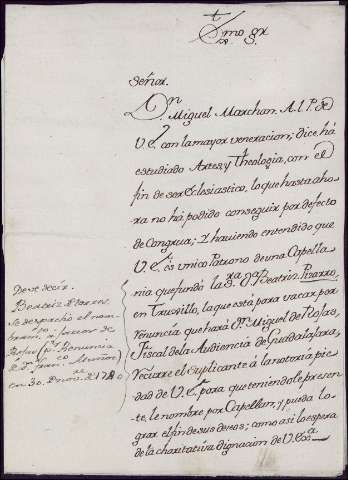 Exmo Sr
Señor.
Dn Miguel Marchan. A.L.P. de
V.E. con la mayor veneracion; dice há
estudiado Artes, y Theologia, con el
fin de ser Eclesiastico, lo que hasta aho-
ra no há podido conseguir por defecto
de Congrua; Y haviendo entendido que
V.E. es Unico Patrono de una Capella-
nia que fundó la Sra. Da. Beatriz Pizarro
en Truxillo, la que está para vacar por
renuncia que hará Dn. Miguel de Rojas,
Fiscal de la Audiencia de Guadalaxara,
Recurre el Suplicante á la notoria pie-
dad de V.E. para que teniendole presen-
te, le nombre por Capellan, y pueda lo-
grar el fin de sus deseos; como asi lo espera
de la charitativa dignacion de V. Exa.
Deve decir
Beatriz
Se despachó el nom-
bram.to a favor de
Renuncia
de Dn. Franco Muñoz
en 30 de